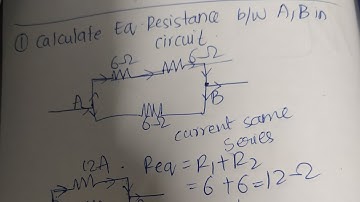 ① Calculate Eq. Resistance b/w A, B in
circuit.
6Ω 6Ω
A B
6Ω
current same
series
12Ω Req = R1 + R2
= 6 + 6 = 12 Ω